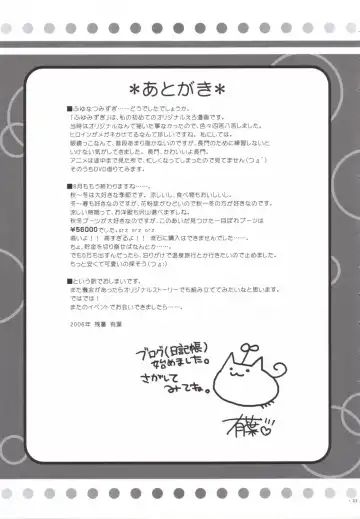 *あとがき*
■ふゆなつみずぎ……どうでしたでしょうか。
「ふゆみずぎ」は、私の初めてのオリジナルえろ漫画です。
当時はオリジナルなんて描いた事なかったので、色々四苦八苦しました。
ヒロインがメガネかけてるなんて珍しいですね。私にしては。
眼鏡っこなんて、普段あまり描かないのですが、長門のために練習しないと
いけない気がしてきました。長門、かわいいよ長門。
アニメは途中まで見た所で、忙しくなってしまったので見てません(つд`)
そのうちDVD借りてみます。
■8月ももう終わりますね……。
秋〜冬は大好きな季節です。涼しいし、食べ物もおいしいし。
冬〜春も好きなのですが、花粉症がひどいので秋一冬の方が好きです。
涼しい時期って、お洋服も沢山選べますしね。
秋冬ブーツが大好きなのですが、このあいだ見つけた一目ぼれブーツは
¥56000でした。orz orz orz
高いよ！！ 高すぎるよ！！ 流石に購入はできませんでした……。
ちょ、貯金を切り崩せばなんとか…
でも5万も出すんだったら、泊りがけで温泉旅行とか行きたいので止めました。
もっと安くて可愛いの探そう(つд;)
■という訳でおしまいです。
また機会があったらオリジナルストーリーでも組み立ててみたいなと思います。
ではでは！
またのイベントでお会いできましたら……。
2006年 残暑 有葉
ブログ(日記帳)
始めました。
さがして
みてね。
有葉